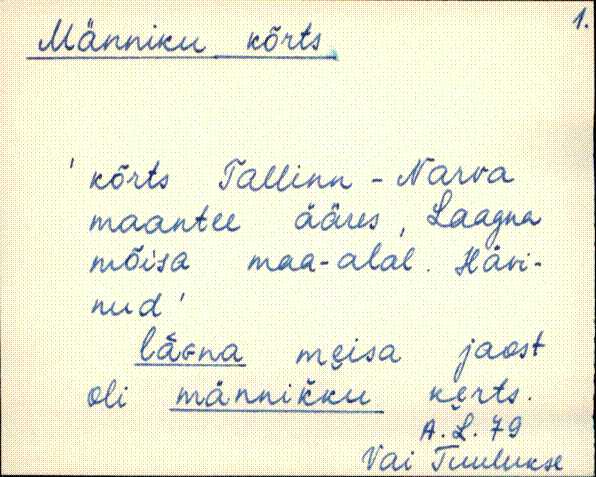 1.
Männiku kõrts
' kõrts Tallinn - Narva
maantee ääres, Laagna
mõisa maa-alal. Hävi-
nud '
lāɢna mẹisa jaost
oli männik̆ku kẹrts.
A. L. 79
Vai Tuulukse